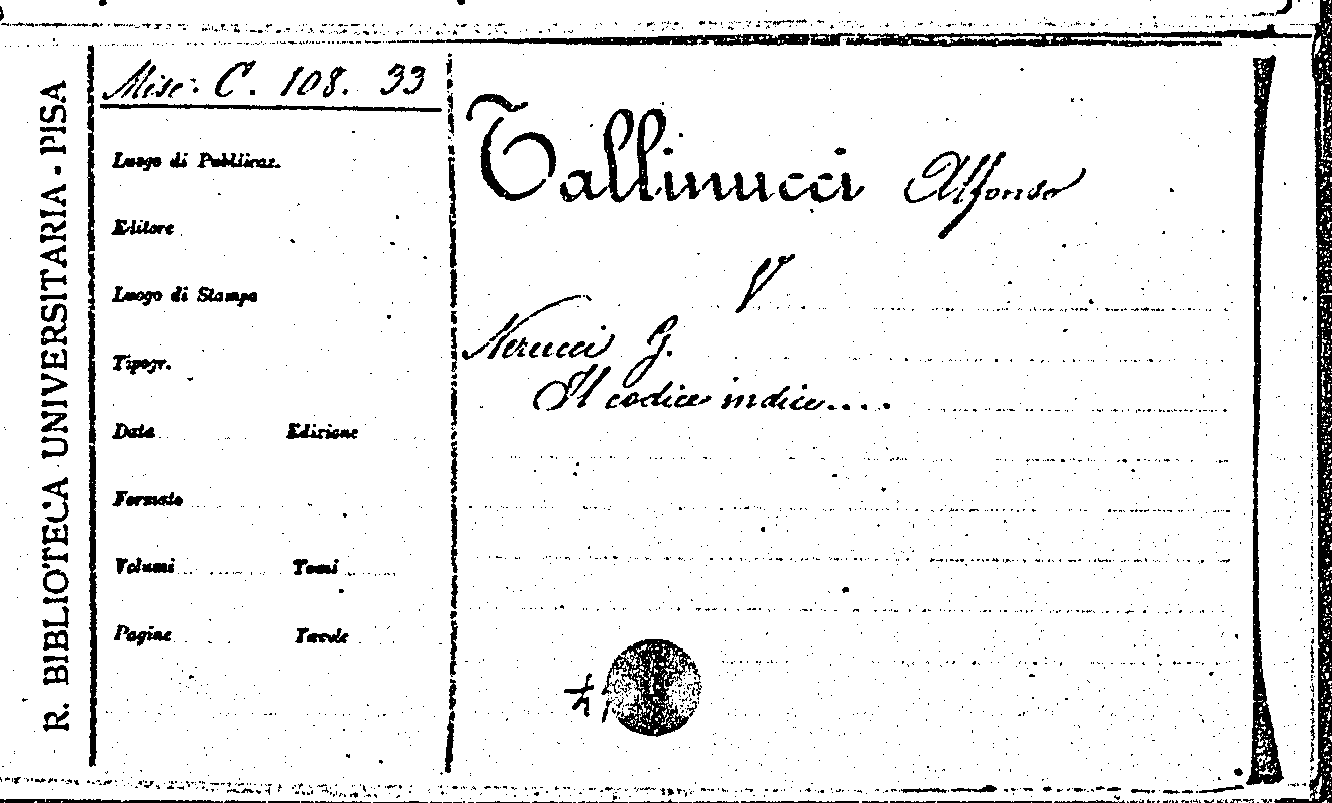 R. BIBLIOTECA UNIVERSITARIA - PISA
Misc. C. 108. 33
Luogo di Pubblicaz.
Editore
Luogo di Stampa
Tipogr.
Data Edizione
Formato
Volumi Tomi
Pagine Tavole
Tallinucci Alfonso
V
Nerucci G.
Il codice indice....